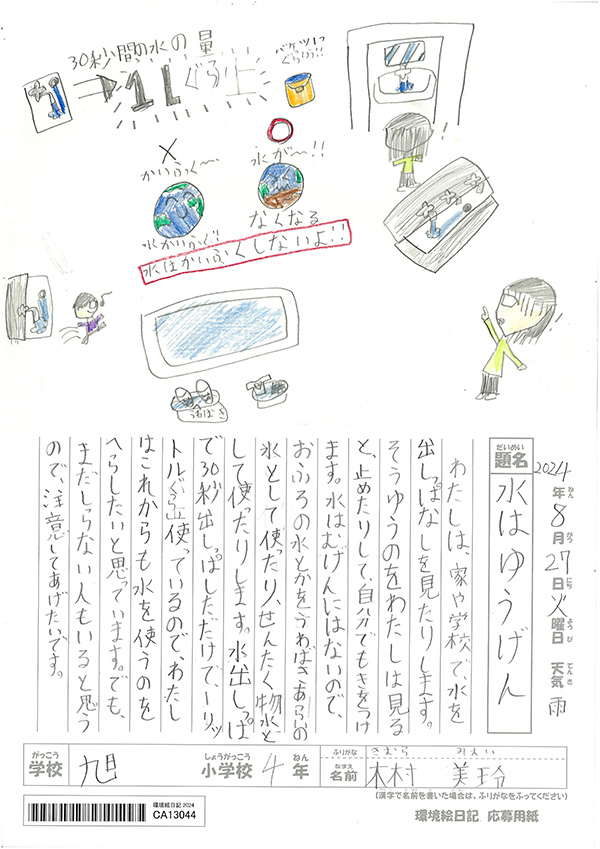 30秒間の水の量
1Lぐらい
バケツ1つ
ぐらい!!
×
かいふく〜
水かいふく!!
水が〜!!
なくなる
水はかいふくしないよ!!
うわばき
2024年8月27日火曜日 天気 雨
だいめい
題名
水はゆうげん
わたしは、家や学校で、水を
出しっぱなしを見たりします。
そうゆうのをわたしは見る
と、止めたりして、自分でもきをつけ
ます。水はむげんにはないので、
おふろの水とかをうわばきあらいの
水として使ったり、せんたく物水と
して使ったりします。水出しっぱ
で30秒出しっぱしただけで、一リッ
トルぐらい使っているので、わたし
はこれからも水を使うのを
へらしたいと思っています。でも、
まだしらない人もいると思う
ので、注意してあげたいです。
がっこう
学校
旭
しょうがっこう
小学校
4
ねん
年
ふりがな
きむら みれい
なまえ
名前
木村 美玲
(漢字で名前を書いた場合は、ふりがなをふってください)
環境絵日記 2024
CA13044
環境絵日記 応募用紙